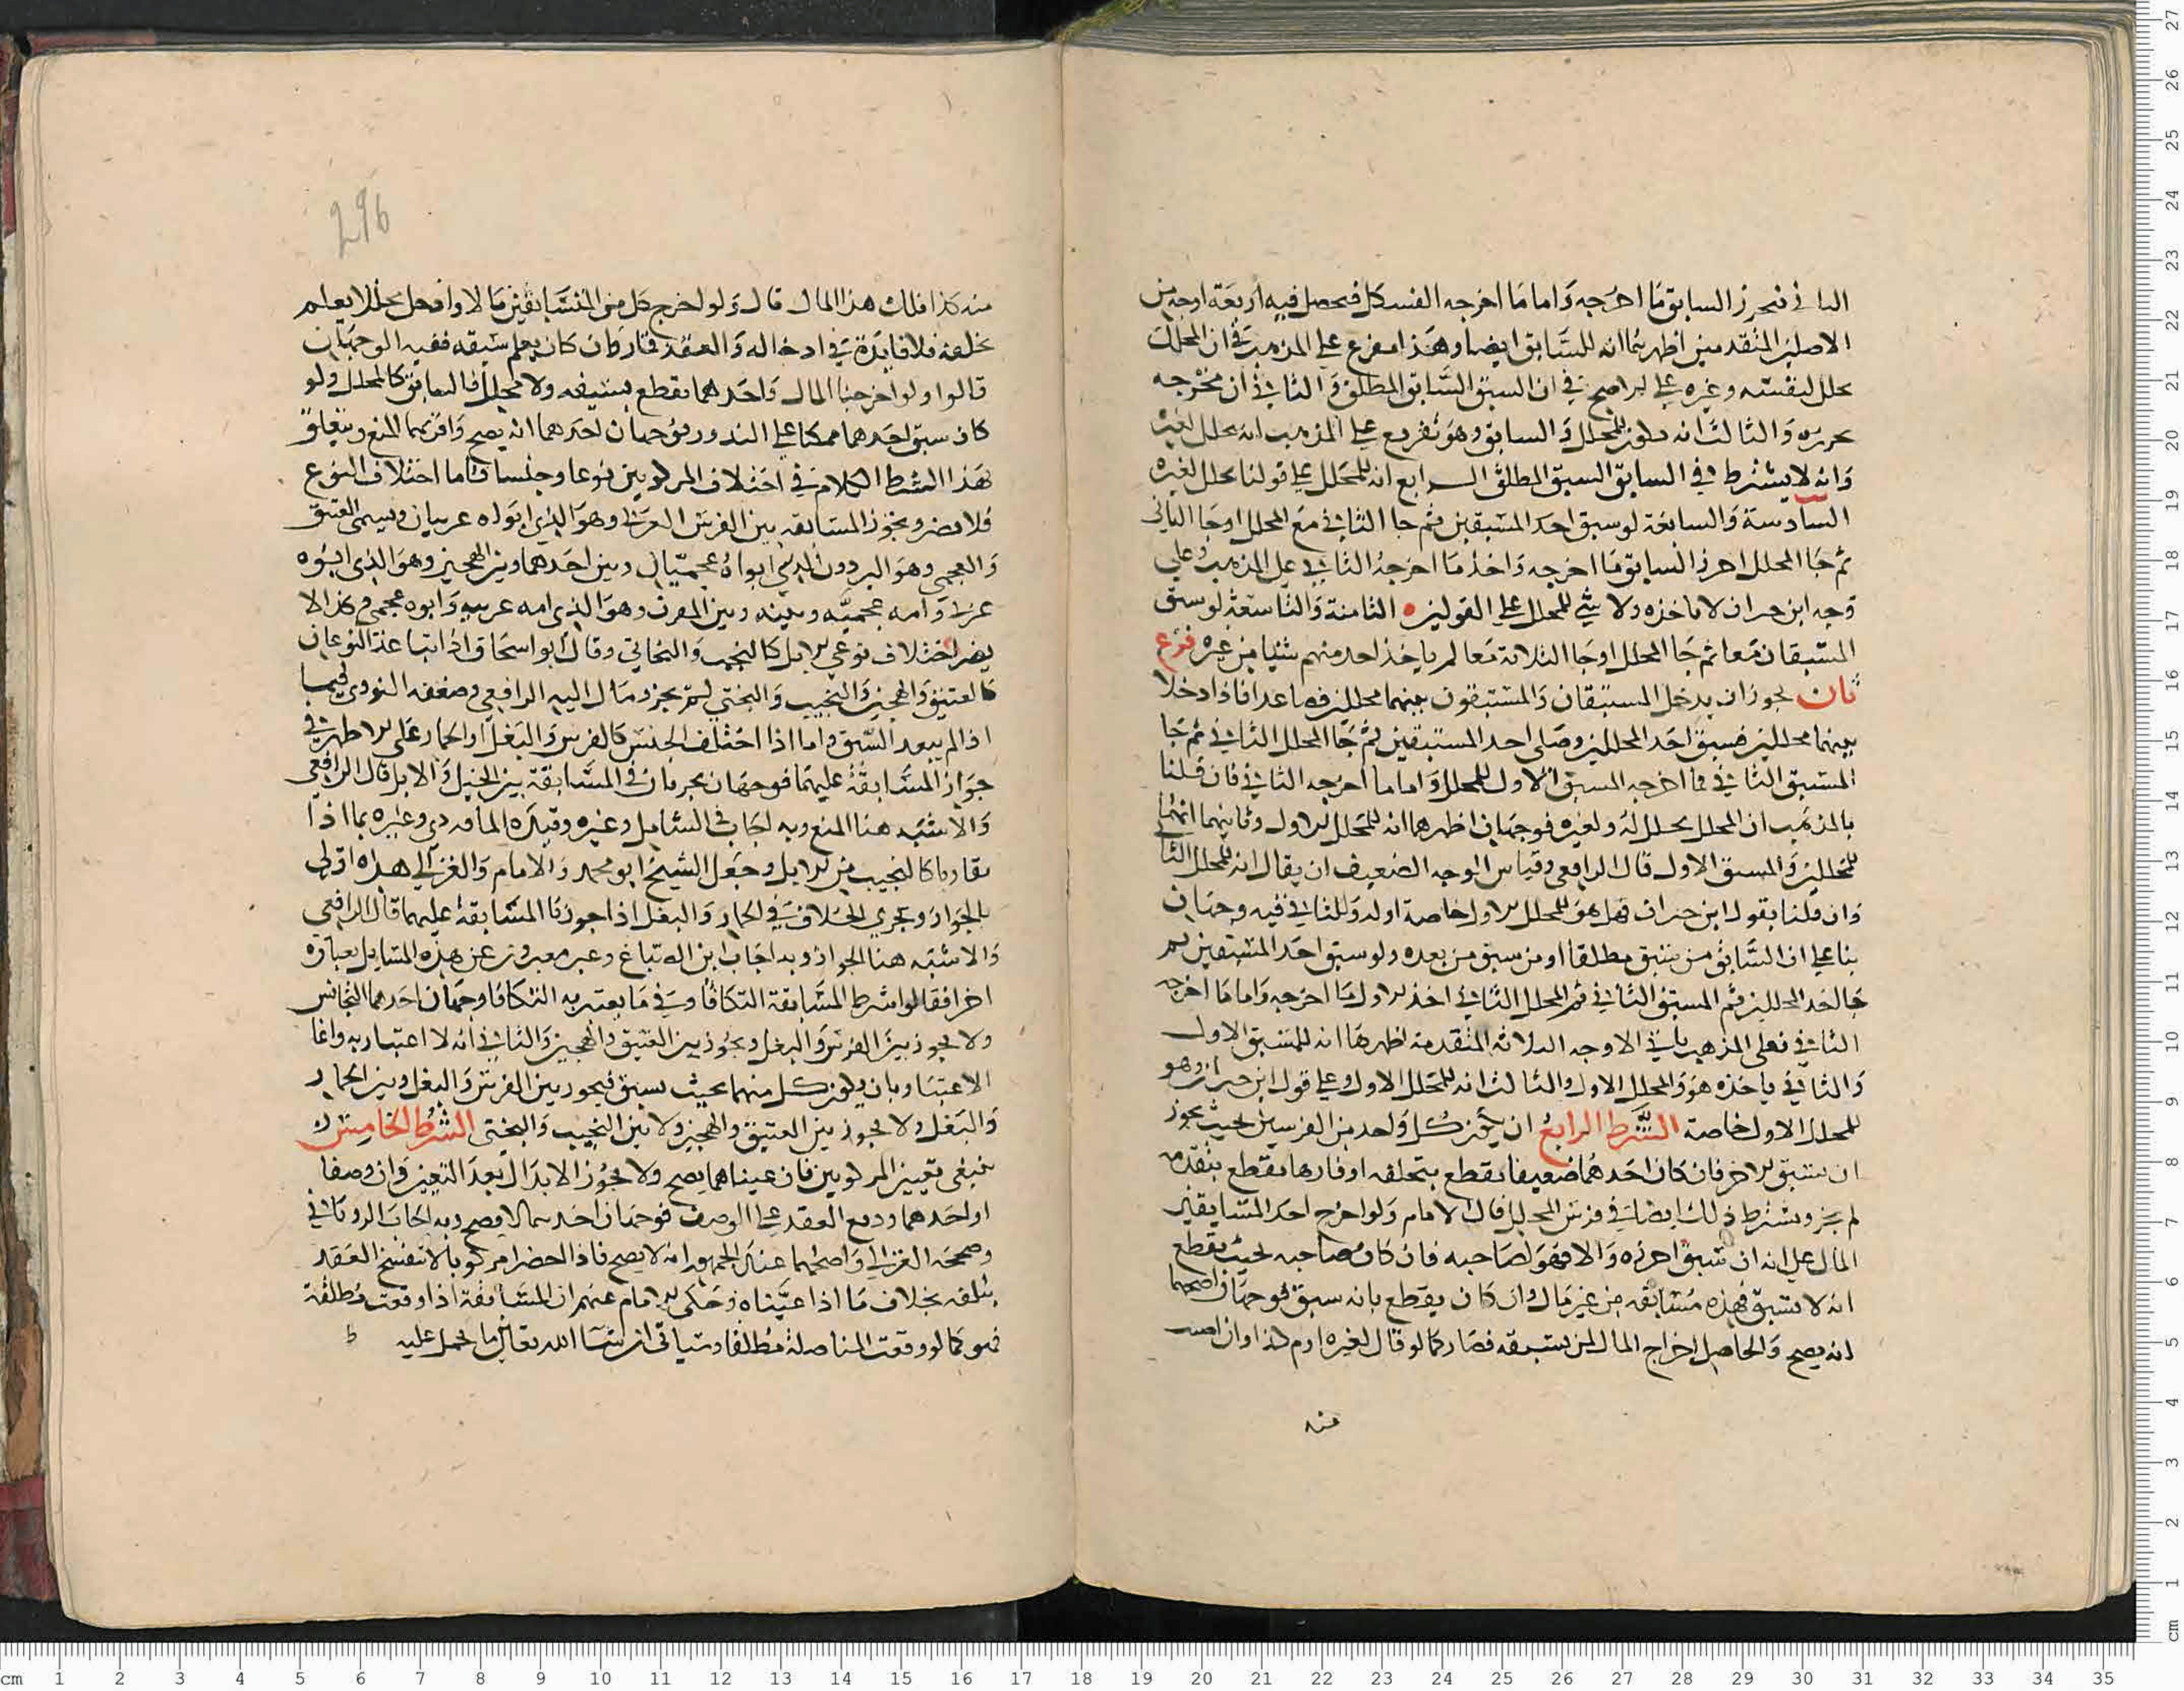 الثاني فيحرز السابق ما اخرجه واما ما اخرجه الفسكل فيحصل فيه اربعة اوجه من
الاصلين المتقدمين اظهرهما انه للسابق ايضا وهذا مفرع على المذهب في ان المحلل
يحلل لنفسه وغيره على الاصح في ان السبق السابق المطلق والثاني ان مخرجه
يحرزه والثالث انه يكون للمحلل والسابق وهو تفريع على المذهب انه يحلل لغيره
وانه لا يشترط في السابق السبق المطلق الرابع انه للمحلل على قولنا يحلل لغيره
السادسة والسابعة لو سبق احد المستبقين ثم جا الثاني مع المحلل او جا الثاني
ثم جا المحلل احرز السابق ما اخرجه واخذ ما اخرجه الثاني على المذهب وعلى
وجه ابن خيران لا ياخذه ولا شي للمحلل على القولين الثامنة والتاسعة لو سبق
المستبقان معا ثم جا المحلل او جا الثلاثة معا لم ياخذ احد منهم شيئا من غيره فرع
ثان يجوز ان يدخل المستبقان والمستبقون بينهما محللين فصاعدا فاذا دخلا
بينهما محللين فسبق احد المحللين وصلى احد المستبقين ثم جا المحلل الثاني ثم جا
المستبق الثاني فما اخرجه المستبق الاول للمحلل واما ما اخرجه الثاني فان قلنا
بالمذهب ان المحلل يحلل له ولغيره فوجهان اظهرهما انه للمحلل الاول وثانيهما انهما
للمحللين والمستبق الاول قال الرافعي وقياس الوجه الضعيف ان يقال انه للمحلل الثا
وان قلنا بقول ابن خيران فهل هو للمحلل الاول خاصة اوله وللثاني فيه وجهان
بنا على ان السابق من يسبق مطلقا او من سبق من بعده ولو سبق احد المستبقين ثم
جا احد المحللين ثم المستبق الثاني ثم المحلل الثاني اخذ الاول ما اخرجه واما ما اخرجه
الثاني فعلى المذهب ياتي الاوجه الثلاثة المتقدمة اظهرها انه للمستبق الاول
والثاني ياخذه هو والمحلل الاول والثالث انه للمحلل الاول وعلى قول ابن خيران هو
للمحلل الاول خاصة الشرط الرابع ان يكون كل واحد من الفرسين بحيث يجوز
ان يسبق الاخر فان كان احدهما ضعيفا يقطع بتخلفه او فارها يقطع بتقدمه
لم يجز ويشترط ذلك ايضا في فرس المحلل قال الامام ولو اخرج احد المتسابقين
المال على انه ان سبق احرزه والا فهو لصاحبه فان كان صاحبه بحيث يقطع
انه لا يسبق فهذه مسابقة من غير مال وان كان يقطع بانه سبق فوجهان اصحهما
انه يصح والحاصل اخراج المال لمن يسبقه فصار كما لو قال لغيره ارم كذا وان اصب
منه
296
منه كذا فلك هذا المال قال ولو اخرج كل من المتسابقين مالا وادخل محللا يعلم
تخلفه فلا فايدة في ادخاله والعقد قمار وان كان يعلم سبقه ففيه الوجهان
قالوا ولو اخرجنا المال واحدهما يقطع بسبقه ولا محلل فالسابق كالمحلل ولو
كان سبق احدهما ممكنا على الندور فوجهان احدهما انه يصح واقربهما المنع ويتعلق
بهذا الشرط الكلام في اختلاف المركوبين نوعا وجنسا فاما اختلاف النوع
فلا يضر ويجوز المسابقة بين الفرس العربي وهو الذي ابواه عربيان ويسمى العتيق
والعجمي وهو البردون الذي ابواه عجميان وبين احدهما وبين الهجين وهو الذي ابوه
عربي وامه عجمية وبينه وبين المقرف وهو الذي امه عربية وابوه عجمي وكذا لا
يضر اختلاف نوعي الابل كالنجيب والبخاتي وقال ابو اسحاق اذا تباعد النوعان
كالعتيق والهجين والنجيب والبختي لم يجز ومال اليه الرافعي وضعفه النووي فيما
اذا لم يبعد السبق واما اذا اختلف الجنس كالفرس والبغل او الحمار على الاظهر في
جواز المسابقة عليهما فوجهان يجريان في المسابقة بين الخيل والابل قال الرافعي
والاشبه هنا المنع وبه اجاب في الشامل وغيره وقيده الماوردي وغيره بما اذا
تقاربا كالنجيب من الابل وجعل الشيخ ابو محمد والامام والغزالي هذه اولى
بالجواز ويجري الخلاف في الحمار والبغل اذا جوزنا المسابقة عليهما قال الرافعي
والاشبه هنا الجواز وبه اجاب ابن الصباغ وعبر معبرون عن هذه المسايل بعبارة
اخرى فقالوا شرط المسابقة التكافا وفي ما يعتبر به التكافا وجهان احدهما التجانس
ولا يجوز بين الفرس والبغل ويجوز بين العتيق والهجين والثاني انه لا اعتبار به وانما
الاعتبار بان يكون كل منهما بحيث يسبق فيجوز بين الفرس والبغل وبين الحمار
والبغل ولا يجوز بين العتيق والهجين ولا بين النجيب والبختي الشرط الخامس
ينبغي تعيين المركوبين فان عيناهما يصح ولا يجوز الابدال بعد التعيين وان وصفا
او احدهما ووقع العقد على الوصف فوجهان احدهما لا يصح وبه اجاب الروياني
وصححه الغزالي واصحهما عند الجمهور انه لا يصح فاذا احضرا مركوبا لا تنفسخ العقد
بتلفه بخلاف ما اذا عيناه وحكى الامام عنهم ان المسابقة اذا وقعت مطلقة
فهو كما لو وقعت المناضلة مطلقا وسياتي ان شا الله تعالى ما يحمل عليه